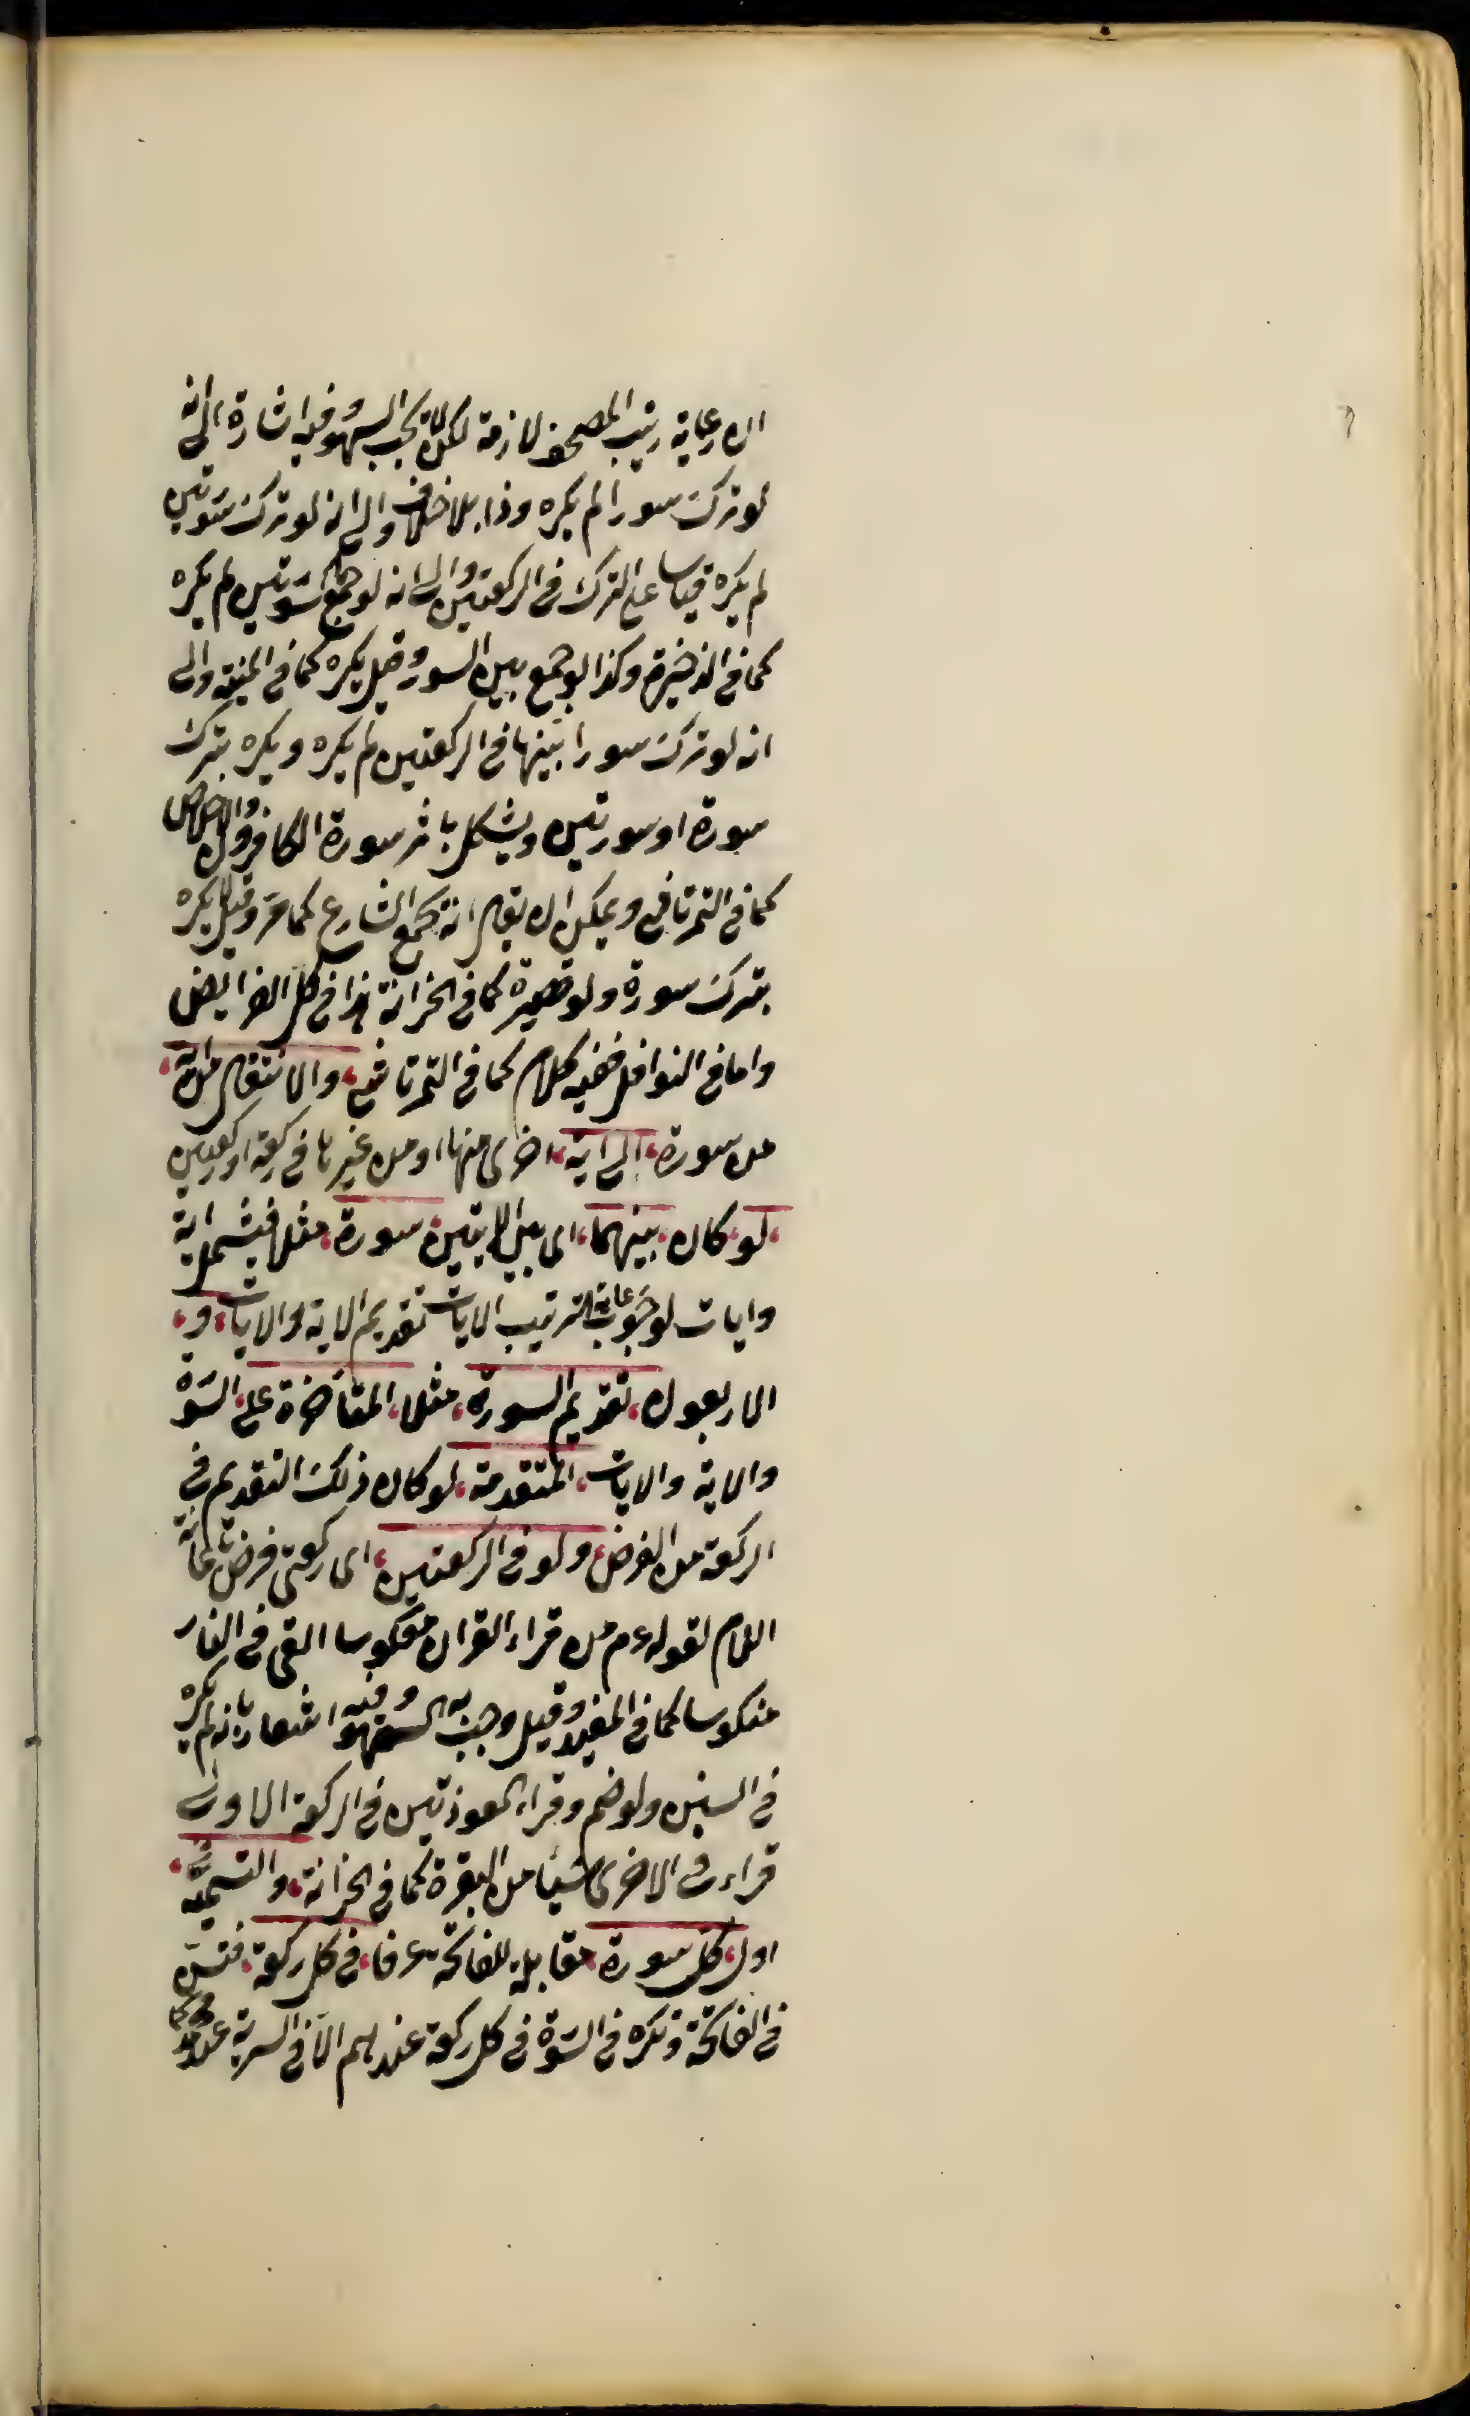 ان رعاية ترتيب المصحف لازمة لكن لا تجب السهو وفيه اشارة الى انه
لو ترك سورا لم يكره وذا بلا خلاف والى انه لو ترك سورتين
لم يكره قياسا على الترك فى الركعتين والى انه لو جمع سورتين لم يكره
كما فى الذخيرة وكذا لو جمع بين السور وقيل يكره كما فى المنية والى
انه لو ترك سورا بينها فى الركعتين لم يكره ويكره بترك
سورة او سورتين ويشكل باثر سورة الكافرون والاخلاص
كما فى التمرتاشى ويمكن ان يقال انه كجمع الشارع كما مر وقيل لا يكره
بترك سورة ولو قصيرة كما فى الخزانة هذا فى كل الفرائض
واما فى النوافل ففيه كلام كما فى التمرتاشى والانتقال من آية
من سورة الى اية اخرى منها او من غيرها فى ركعة او ركعتين
لو كان بينهما اى بين الايتين سورة مثلا فيشمل اية
وايات لوجوب رعاية ترتيب الايات تقديم الاية والايات و
الاربعون تقديم السورة مثلا المتاخرة على السورة
والاية والايات المتقدمة لو كان ذلك التقديم فى
الركعة من الفرض ولو فى الركعتين اى ركعتى فرض ثمانية
اللام لقوله عم من قراء القران معكوسا القى فى النار
منكوسا كما فى المفيد وقيل وجب به السهو وفيه اشعار بانه لم يكره
فى السنن ولو ضم وقراء المعوذتين فى الركعة الاولى
قراء فى الاخرى شيئا من البقرة كما فى الخزانة والتسمية
اول كل سورة مقابلة للفاتحة عرفا فى كل ركعة فتسن
فى الفاتحة وتكره فى السورة فى كل ركعة عندهم الا فى السرية عند محمد كما